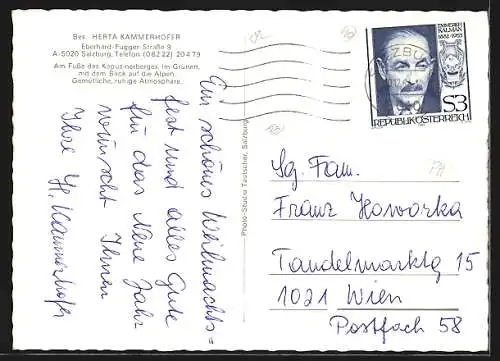 Bes. HERTA KAMMERHOFER
Eberhard-Fugger-Straße 9
A-5020 Salzburg, Telefon (0 82 22) 20 4 79
Am Fuße des Kapuzinerberges, im Grünen,
mit dem Blick auf die Alpen.
Gemütliche, ruhige Atmosphäre.
Ein schönes Weihnachts
fest und alles Gute
für das Neue Jahr
wünscht Ihnen
Ihre H. Kammerhofer
Photo-Studio Tautscher, Salzburg
EMMERICH
KALMAN
1882-1953
S3
REPUBLIK ÖSTERREICH
Sg. Fam.
Franz Haworka
Tandelmarktg 15
1021 Wien
Postfach 58